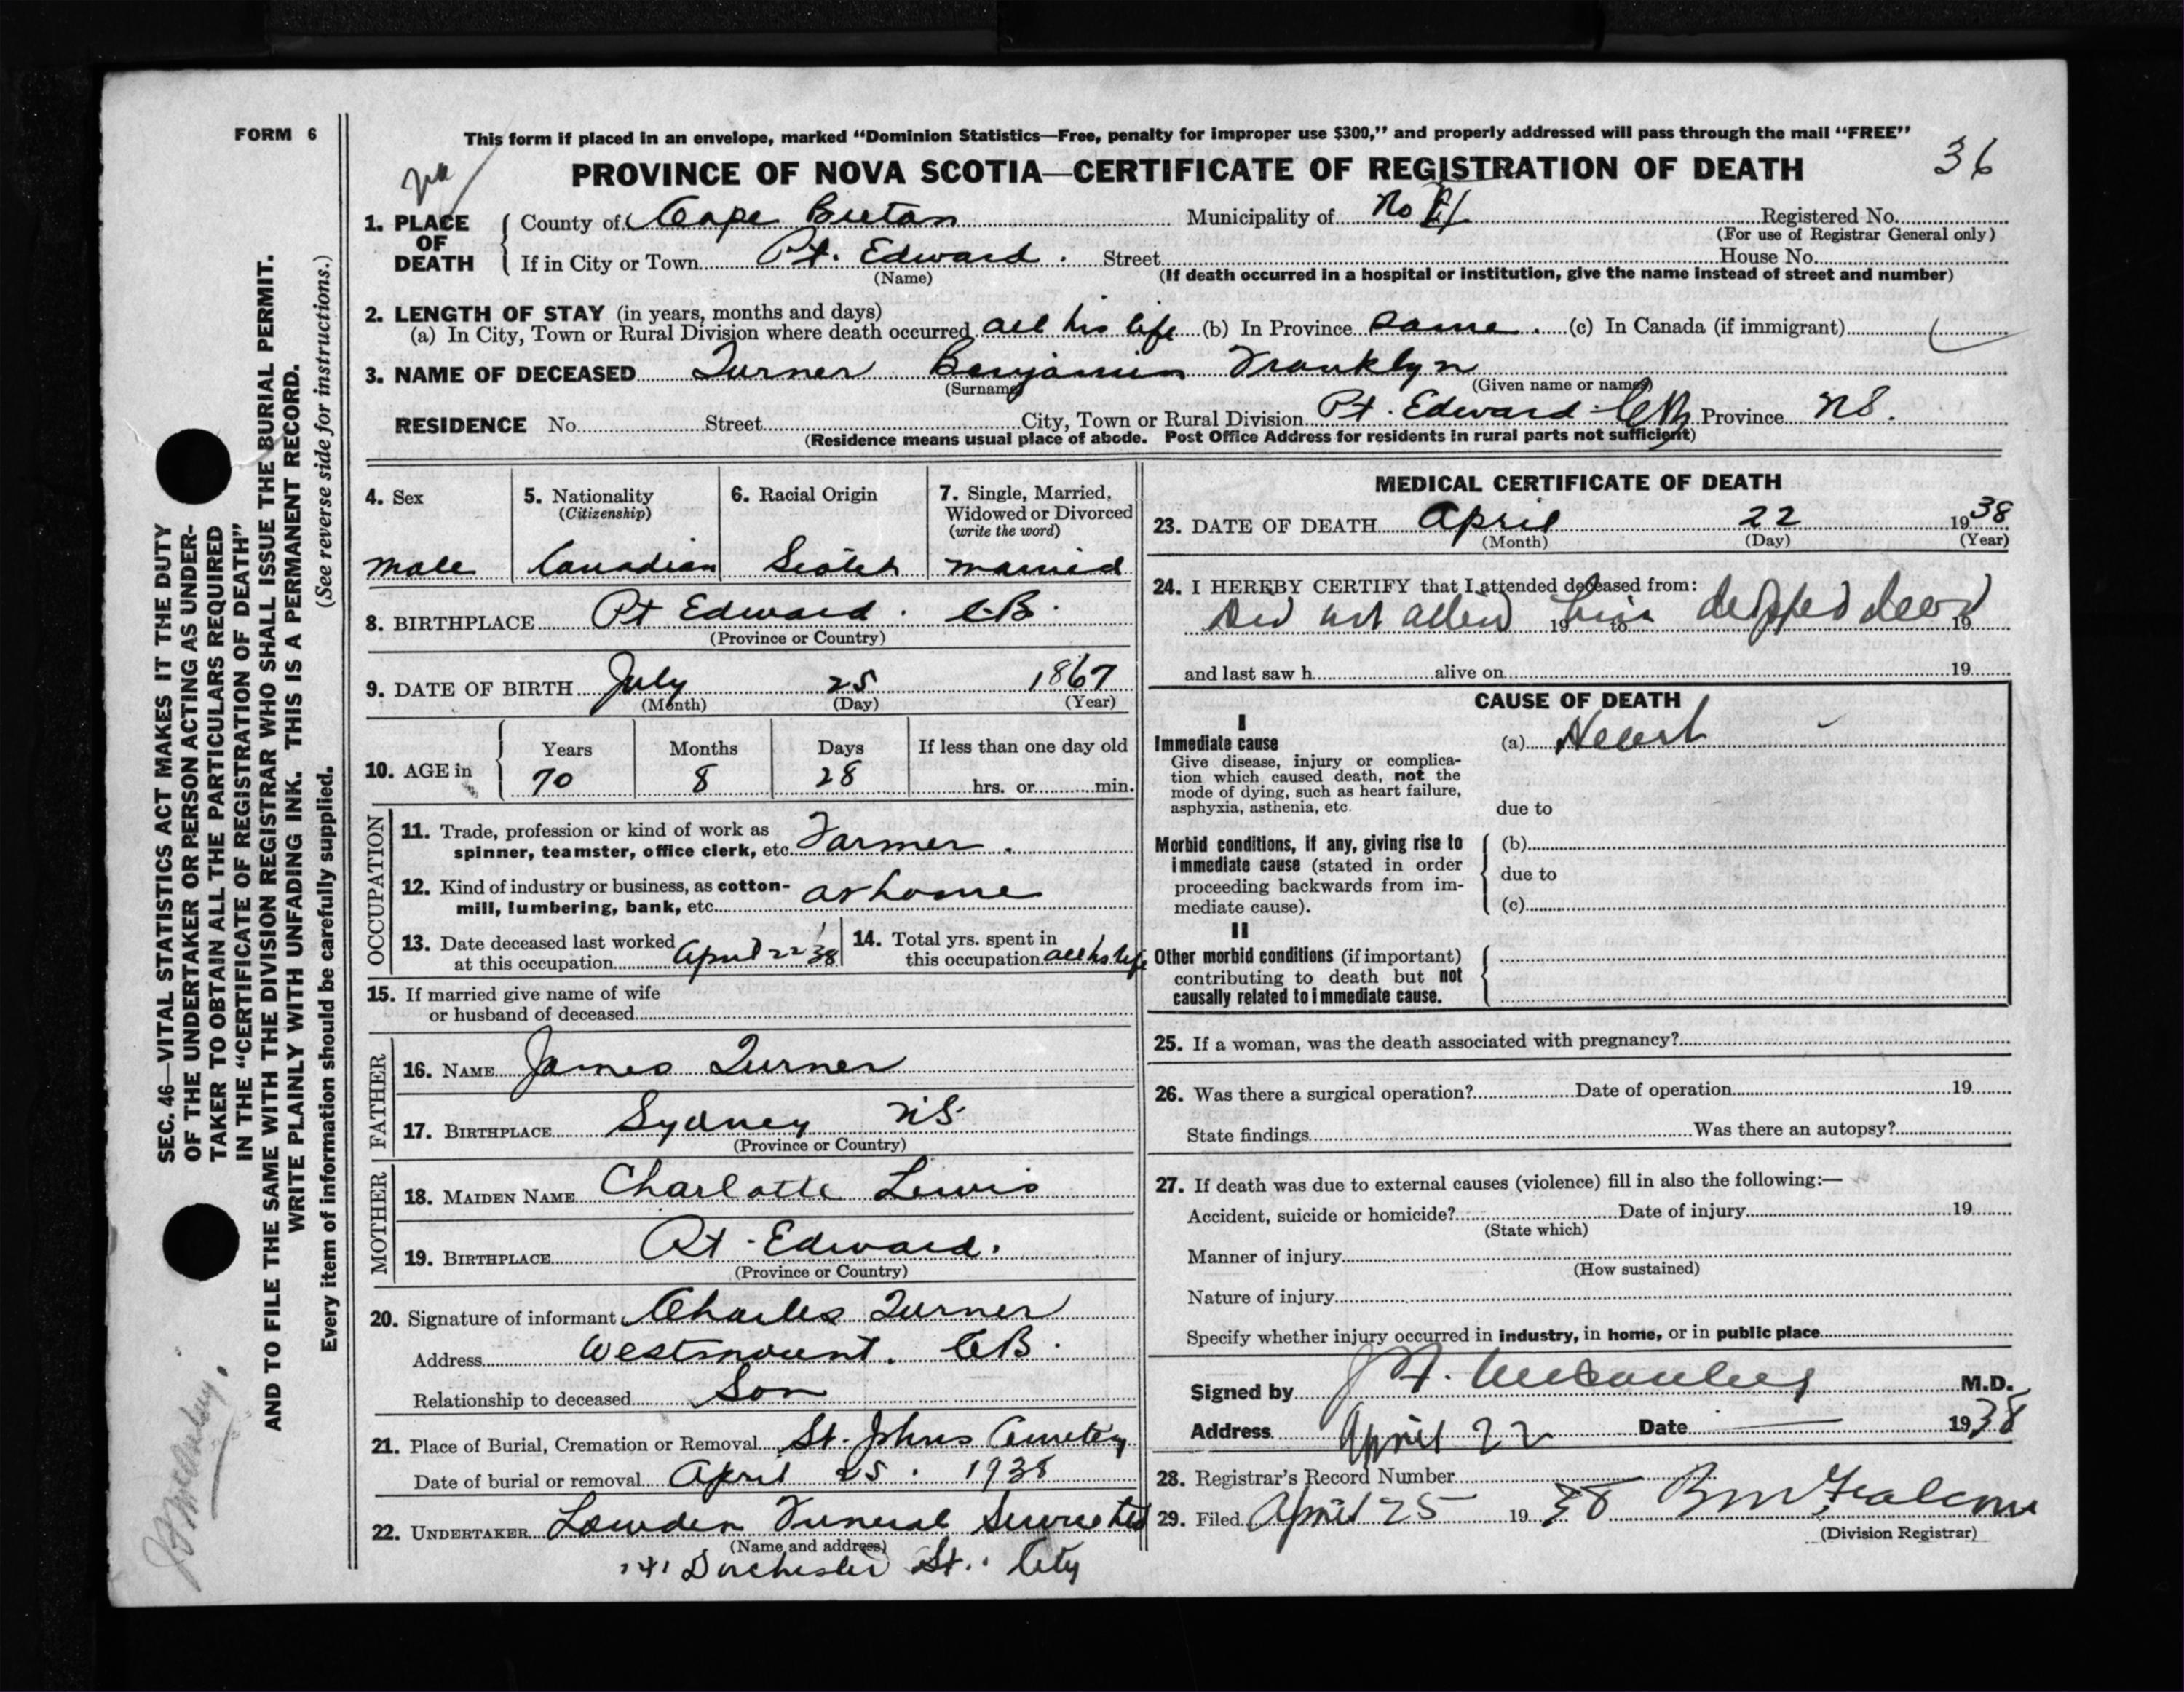 FORM 6
This form if placed in an envelope, marked “Dominion Statistics—Free, penalty for improper use $300,” and properly addressed will pass through the mail “FREE”
PROVINCE OF NOVA SCOTIA—CERTIFICATE OF REGISTRATION OF DEATH 36
1. PLACE OF DEATH
County of Cape Breton Municipality of No Registered No.
(For use of Registrar General only)
If in City or Town Pt. Edward. Street House No.
(Name) (If death occurred in a hospital or institution, give the name instead of street and number)
2. LENGTH OF STAY (in years, months and days)
(a) In City, Town or Rural Division where death occurred all his life (b) In Province same. (c) In Canada (if immigrant)
3. NAME OF DECEASED Turner Benjamin Franklyn
(Surname) (Given name or names)
RESIDENCE No. Street City, Town or Rural Division Pt. Edward Province NS.
(Residence means usual place of abode. Post Office Address for residents in rural parts not sufficient)
4. Sex
male
5. Nationality
(Citizenship)
Canadian
6. Racial Origin
Scotch
7. Single, Married, Widowed or Divorced
(write the word)
married
8. BIRTHPLACE Pt Edward. C.B.
(Province or Country)
9. DATE OF BIRTH July 25 1867
(Month) (Day) (Year)
10. AGE in Years Months Days If less than one day old
70 8 28 hrs. or min.
OCCUPATION
11. Trade, profession or kind of work as
spinner, teamster, office clerk, etc. Farmer.
12. Kind of industry or business, as cotton-
mill, lumbering, bank, etc. at home
13. Date deceased last worked
at this occupation April 22/38
14. Total yrs. spent in
this occupation all his life
15. If married give name of wife
or husband of deceased
FATHER
16. NAME James Turner
17. BIRTHPLACE Sydney N.S.
(Province or Country)
MOTHER
18. MAIDEN NAME Charlotte Lewis
19. BIRTHPLACE Pt. Edward.
(Province or Country)
20. Signature of informant Charles Turner
Address Westmount. C.B.
Relationship to deceased Son
21. Place of Burial, Cremation or Removal St. Johns Cemetey
Date of burial or removal April 25. 1938
22. UNDERTAKER Lowden Funeral Service Ltd
(Name and address)
Dorchester St. City
MEDICAL CERTIFICATE OF DEATH
23. DATE OF DEATH April 22 1938
(Month) (Day) (Year)
24. I HEREBY CERTIFY that I attended deceased from:
Did not attend 19 him to dropped dead 19
and last saw h alive on 19
CAUSE OF DEATH
I
Immediate cause (a) Heart
Give disease, injury or complica-
tion which caused death, not the
mode of dying, such as heart failure,
asphyxia, asthenia, etc. due to
Morbid conditions, if any, giving rise to (b)
immediate cause (stated in order
proceeding backwards from im- due to
mediate cause). (c)
II
Other morbid conditions (if important)
contributing to death but not
causally related to immediate cause.
25. If a woman, was the death associated with pregnancy?
26. Was there a surgical operation? Date of operation 19
State findings Was there an autopsy?
27. If death was due to external causes (violence) fill in also the following:—
Accident, suicide or homicide? Date of injury 19
(State which)
Manner of injury
(How sustained)
Nature of injury
Specify whether injury occurred in industry, in home, or in public place
Signed by M.D.
Address April 22 Date 1938
28. Registrar's Record Number
29. Filed April 25 1938
(Division Registrar)
SEC. 46—VITAL STATISTICS ACT MAKES IT THE DUTY
OF THE UNDERTAKER OR PERSON ACTING AS UNDER-
TAKER TO OBTAIN ALL THE PARTICULARS REQUIRED
IN THE “CERTIFICATE OF REGISTRATION OF DEATH”
AND TO FILE THE SAME WITH THE DIVISION REGISTRAR WHO SHALL ISSUE THE BURIAL PERMIT.
WRITE PLAINLY WITH UNFADING INK. THIS IS A PERMANENT RECORD.
(See reverse side for instructions.)
Every item of information should be carefully supplied.